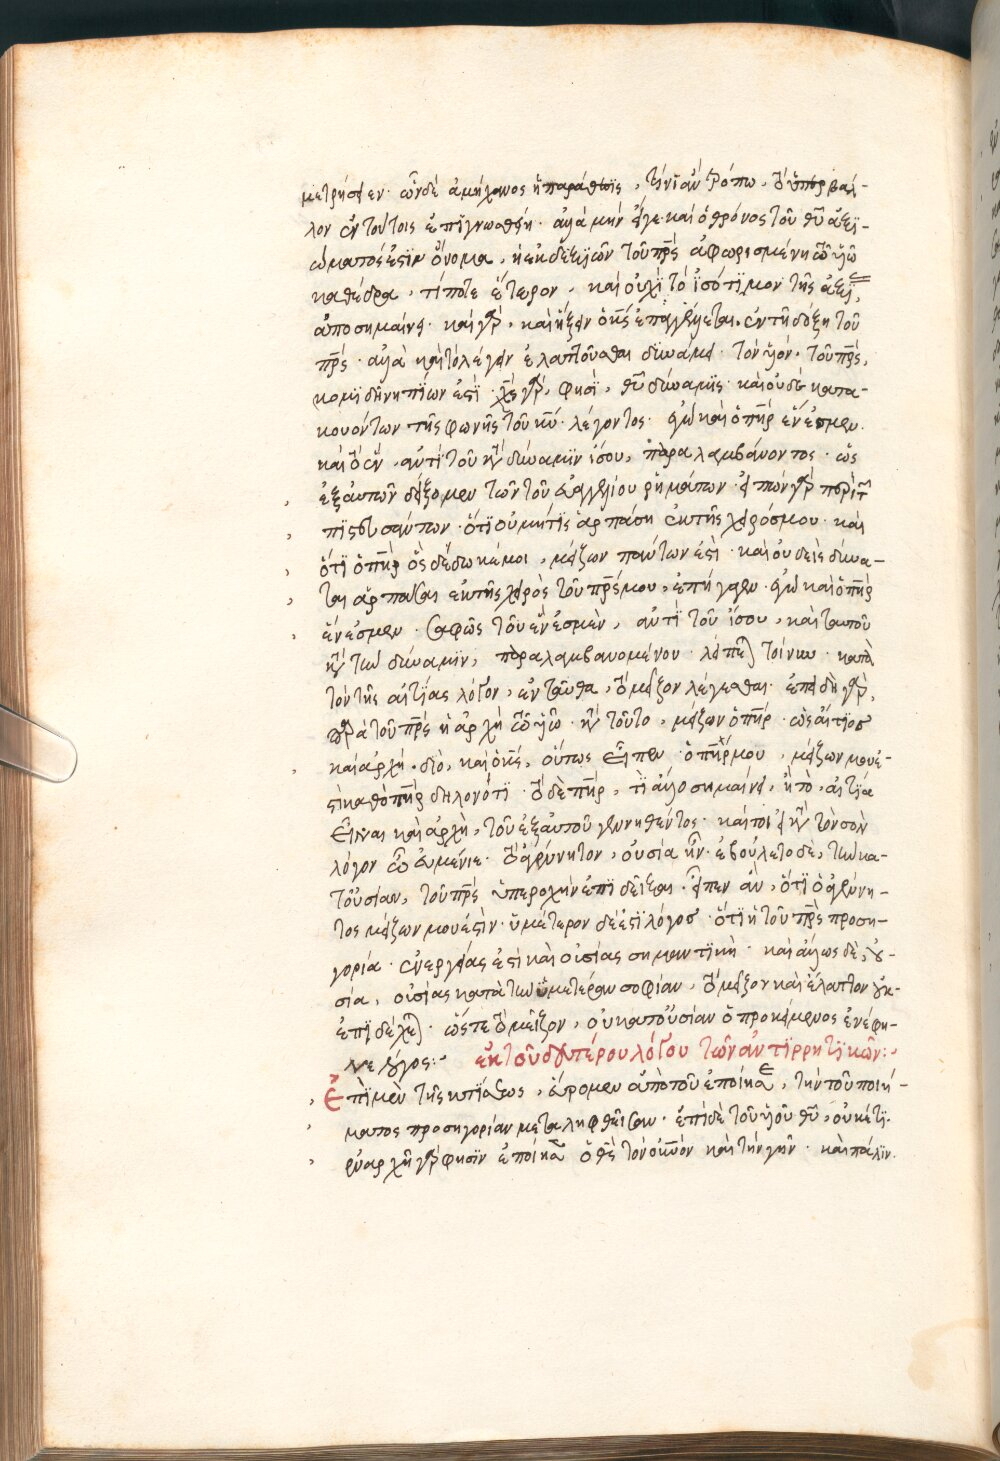 μετρήσειεν. ὧν δὲ ἀμήχανος ἡ παράθεσις, τίνι ἂν τρόπω, τὸ ὑπερβάλ-
λον ἐν τούτοις ἐπιγνωσθείη. ἀλλὰ μὴν εἴγε καὶ ὁ θρόνος τοῦ θῦ ἀξι-
ώματός ἐστιν ὄνομα, ἡ ἐκ δεξιῶν τοῦ πρς ἀφωρισμένη τῶ υἱῶ
καθέδρα, τί ποτε ἕτερον, καὶ οὐχὶ τὸ ἰσότιμον τῆς ἀξί
ἀποσημαίνει. καὶ γὰρ, καὶ ἥξειν ὁ κς ἐπαγγέλλεται ἐν τῆ δόξη τοῦ
πρς. ἀλλὰ καὶ τὸ λέγειν ἐλαττοῦσθαι δυνάμει τὸν υἱὸν τοῦ πρς,
κομιδῆ νηπίων ἐστί. χς γὰρ, φησὶ, θῦ δύναμις. καὶ οὐδὲ κατα-
κουόντων τῆς φωνῆς τοῦ κυ λέγοντος. ἐγὼ καὶ ὁ πηρ ἕν ἐσμεν.
καὶ τὸ ἓν, ἀντὶ τοῦ κατὰ δύναμιν ἴσου, παραλαμβάνοντος. ὡς
ἐξ αὐτῶν δείξομεν τῶν τοῦ εὐαγγελίου ῥημάτων. εἰπὼν γὰρ περὶ τῶν
πιστευσάντων. ὅτι οὐ μή τις ἁρπάση ἐκ τῆς χειρός μου. καὶ
ὅτι ὁ πηρ ὃς δέδωκέ μοι, μείζων πάντων ἐστὶ. καὶ οὐδεὶς δύνα-
ται ἁρπάσαι ἐκ τῆς χειρὸς τοῦ πρς μου, ἐπήγαγεν. ἐγὼ καὶ ὁ πηρ
ἕν ἐσμεν. σαφῶς τοῦ ἕν ἐσμὲν, ἀντὶ τοῦ ἴσου, καὶ ταυτοῦ
κατὰ τὴν δύναμιν, παραλαμβανομένου. λείπεται τοίνυν κατὰ
τὸν τῆς αἰτίας λόγον, ἐνταῦθα, τὸ μεῖζον λέγεσθαι. ἐπειδὴ γὰρ,
παρὰ τοῦ πρς ἡ ἀρχὴ τῶ υἱῶ. κατὰ τοῦτο, μείζων ὁ πηρ. ὡς αἴτιος
καὶ ἀρχή. διὸ, καὶ ὁ κς, οὕτως εἶπεν. ὁ πηρ μου, μείζων μου ἐ-
στὶ καθὸ πηρ δηλονότι. τὸ δὲ πηρ, τί ἄλλο σημαίνει, ἢ τὸ, αἰτία
εἶναι καὶ ἀρχὴ, τοῦ ἐξ αὐτοῦ γεννηθέντος. καί τοι εἰ κατὰ τὸν σὸν
λόγον ὦ εὐνόμιε. τὸ ἀγέννητον, οὐσία ἦν. ἐβούλετο δὲ, τὴν κα-
τ' οὐσίαν, τοῦ πρς ὑπεροχὴν ἐπιδεῖξαι. εἶπεν ἂν, ὅτι ὁ ἀγέννη-
τος μείζων μου ἐστὶν. ὑμέτερον δέ ἐστι λόγος. ὅτι ἡ τοῦ πρς προση-
γορία. ἐνεργείας ἐστὶ καὶ οὐσίας σημαντικὴ. καὶ ἄλλως δὲ, οὐ-
σία, οὐσίας κατὰ τὴν ὑμετέραν σοφίαν, τὸ μεῖζον καὶ ἔλαττον οὐκ
ἐπιδέχεται. ὥστε τὸ μεῖζον, οὐ κατ' οὐσίαν ὁ προκείμενος ἐνέφη-
νε λόγος:
ἐκ τοῦ δευτέρου λόγου τῶν ἀντιρρητικῶν:
Ἐπὶ μὲν τῆς κτίσεως, εὕρομεν ἀπὸ τοῦ ἐποίησε, τὴν τοῦ ποιή-
ματος προσηγορίαν μεταληφθεῖσαν. ἐπὶ δὲ τοῦ υἱοῦ θῦ, οὐκέτι.
ἐν ἀρχῆ γάρ φησιν ἐποίησεν ὁ θς τὸν οὐνὸν καὶ τὴν γῆν. καὶ πάλιν.